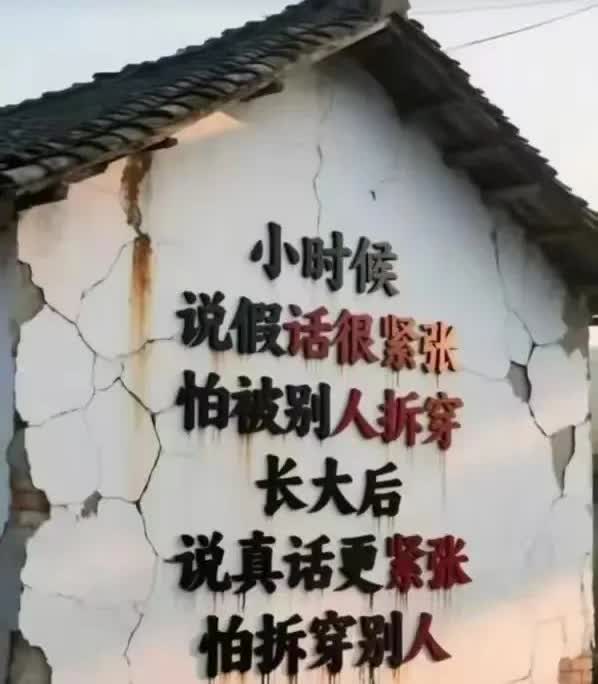 小时候
说假话很紧张
怕被别人拆穿
长大后
说真话更紧张
怕拆穿别人